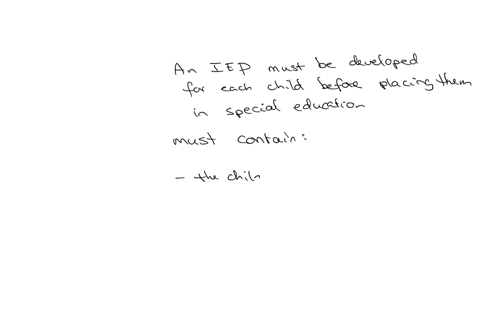 An IEP must be developed
for each child before placing them
in special education
must contain:
- the chil